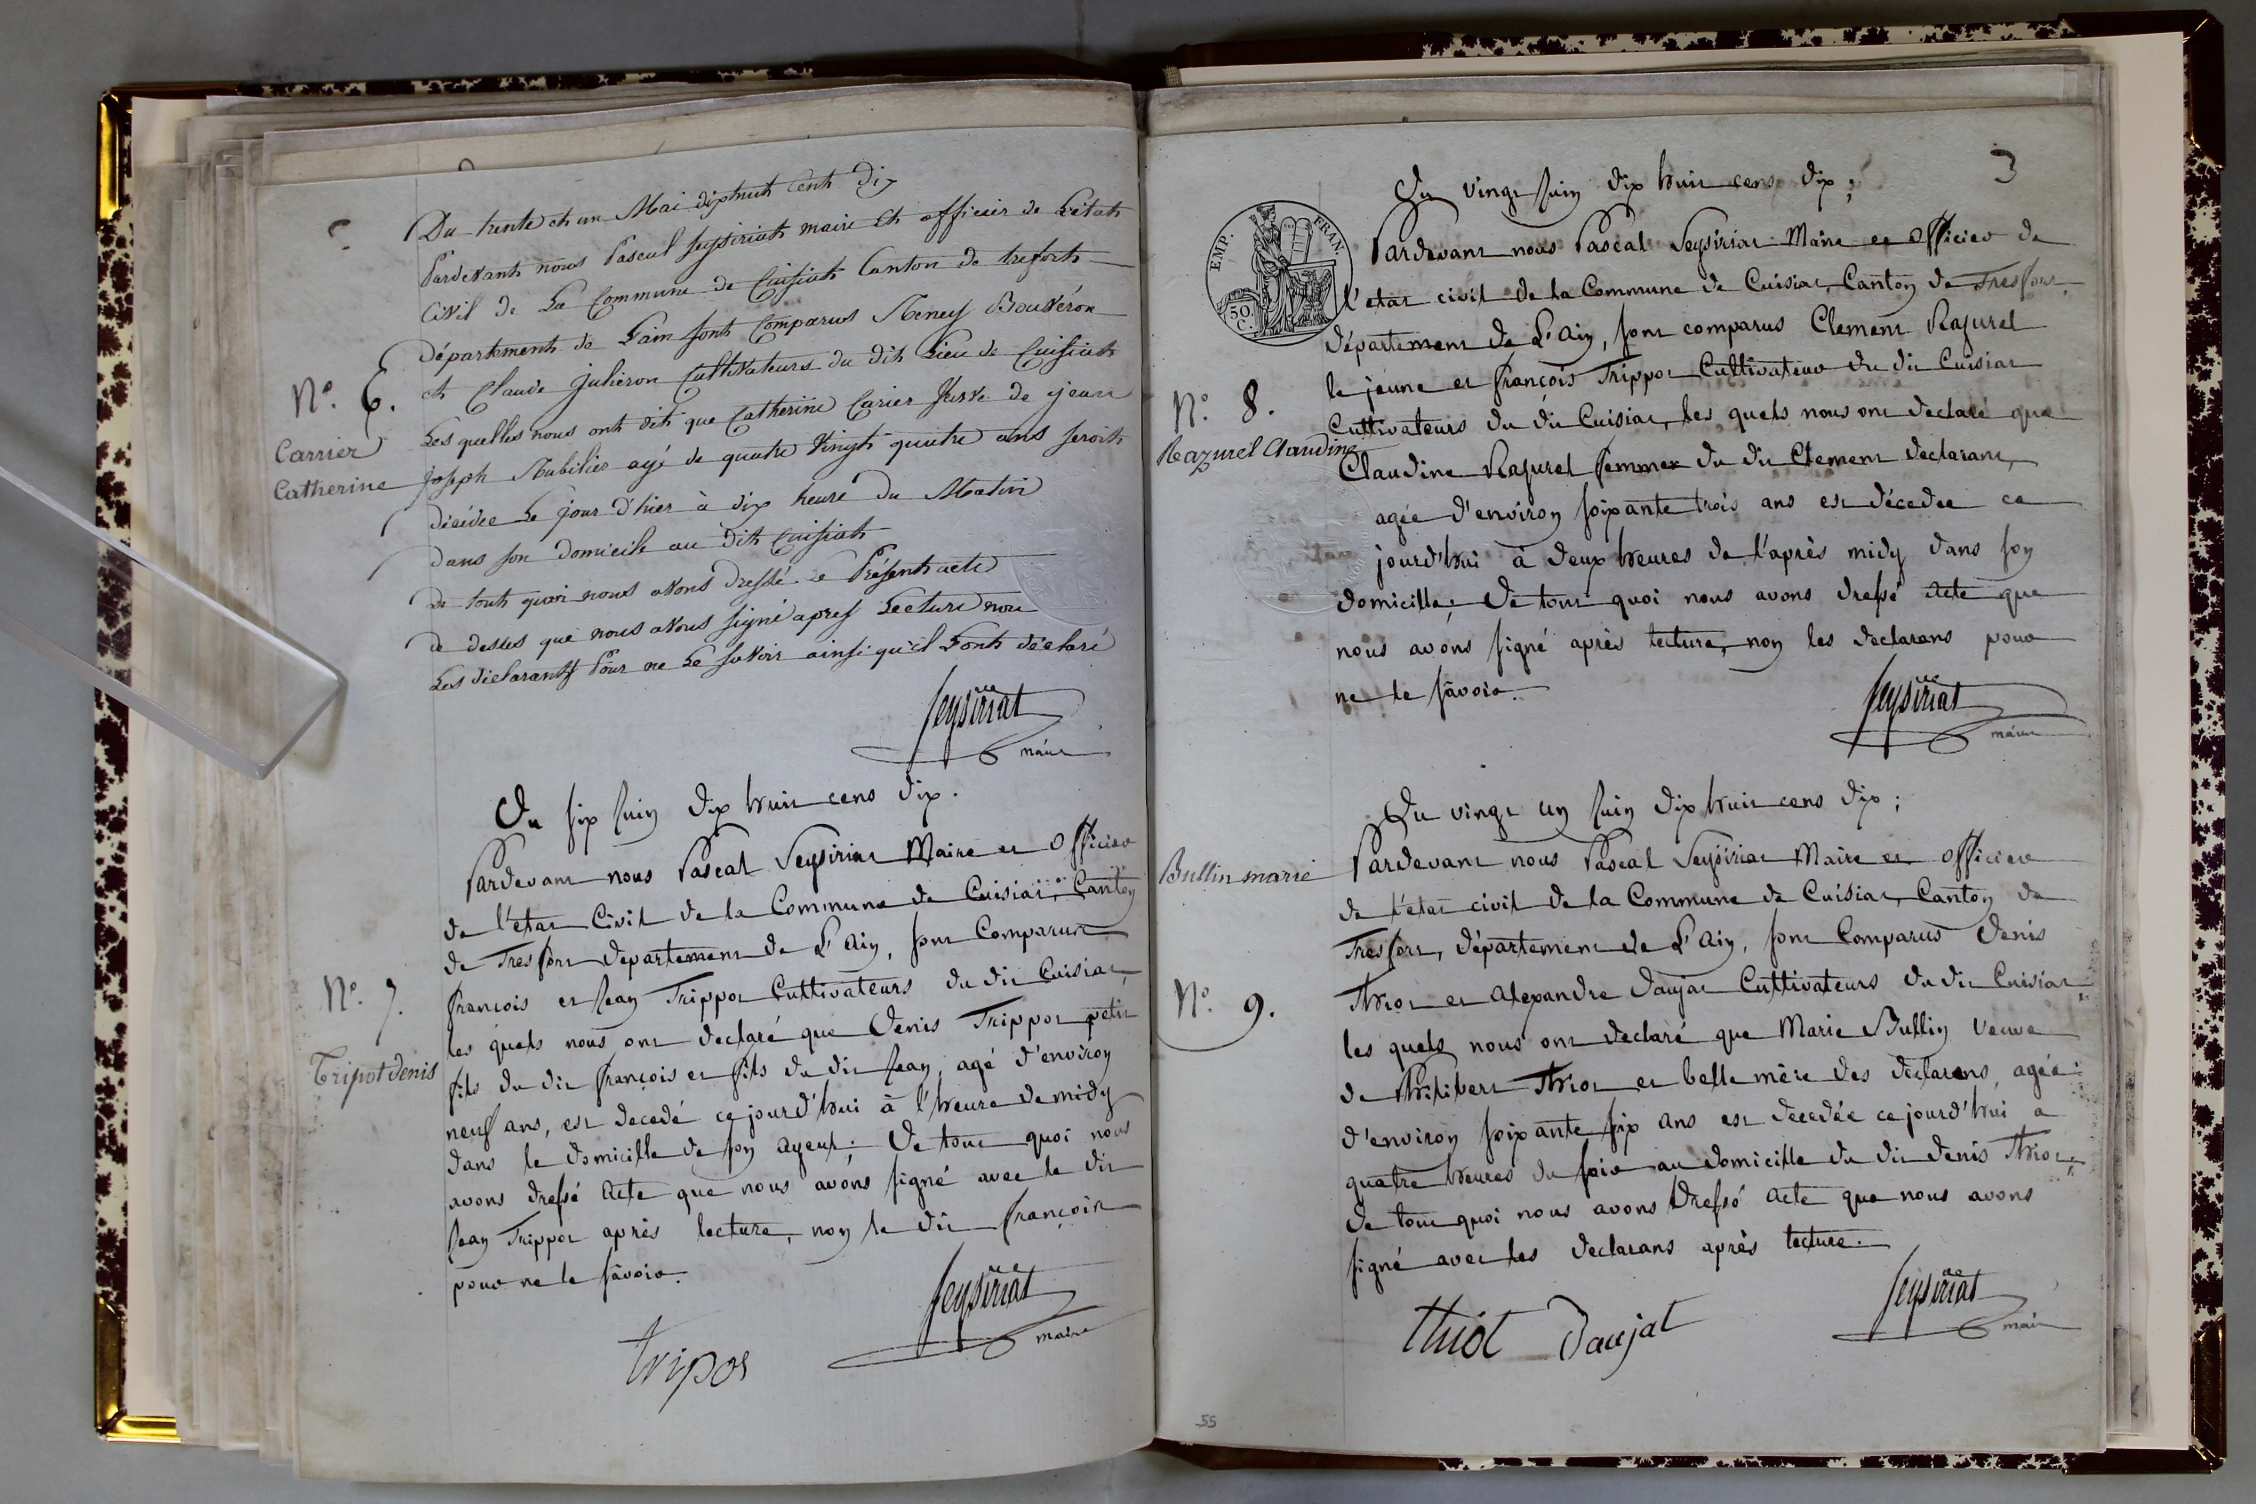 Du trente et un Mai dixhuit cent dix
Pardevant nous Pascal Seyssiriat maire et officier de L'état
Civil de La Commune de Cuisiat Canton de trefort
Département de Lain sont Comparus Bouvéron
et Claude Juliéron Cultivateurs du dit Lieu de Cuisiat
N.º 6.
Les quelles nous ont dit que Catherine Carier veuve de jean
Carrier
Catherine
Joseph agé de quatre vingt quatre ans seroit
décédée Le jour d'hier à dix heure du Matin
dans son domicile au dit Cuisiat
de tout quoi nous avons dressé Le Présent acte
de dessus que nous avons signé apres Lecture non
Les déclarants Pour ne Le savoir ainsi qu'il L'ont déclaré
Seysiriat
maire
Du six Juin dix huit cens dix.
Pardevant nous Pascal Seysiriat Maire et Officier
de l'etat Civil de la Commune de Cuisiat, Canton
de Tresfort département de L'Ain, sont Comparus
françois et Jean Trippot Cultivateurs du dit Cuisiat,
N.º 7.
les quels nous ont declaré que Denis Trippot petit
Tripot denis
fils du dit françois et fils du dit Jean, agé d'environ
neuf ans, est decedé ce jourd'hui à l'heure de midy
dans le domicille de son ayeul; De tout quoi nous
avons dressé Acte que nous avons signé avec le dit
Jean Trippot après lecture, non le dit françois
pour ne le savoir.
Seysiriat
maire
tripot
3
Du vingt Juin dix huit cens dix;
EMP. FRAN.
50.
C.
Pardevant nous Pascal Seysiriat Maire et Officier de
l'etat civil de la Commune de Cuisiat, Canton de Tresfort,
département de L'Ain, sont comparus Clement Razurel
le jeune et françois Trippot Cultivateur du dit Cuisiat
N.º 8.
Cultivateurs du dit Cuisiat, les quels nous ont declaré que
Razurel Claudine
Claudine Razurel femme du dit Clement declarant,
agée d'environ soixante trois ans est décedée ce
jourd'hui à deux heures de l'après midy dans son
domicille; De tout quoi nous avons dressé Acte que
nous avons signé après lecture, non les declarans pour
ne le savoir.
Seysiriat
maire
Du vingt un Juin dix huit cens dix;
Bullin marie
Pardevant nous Pascal Seysiriat Maire et Officier
de l'etat civil de la Commune de Cuisiat, Canton de
Tresfort, département de L'Ain, sont Comparus Denis
N.º 9.
Thiot et Alexandre Daujat Cultivateurs du dit Cuisiat,
les quels nous ont declaré que Marie Bullin veuve
de Philibert Thiot et belle mère des declarans, agée
d'environ soixante six ans est decedée ce jourd'hui a
quatre heures du soir au domicille du dit Denis Thiot;
De tout quoi nous avons dressé Acte que nous avons
signé avec les declarans après lecture.
Seysiriat
maire
thiot Daujat
55